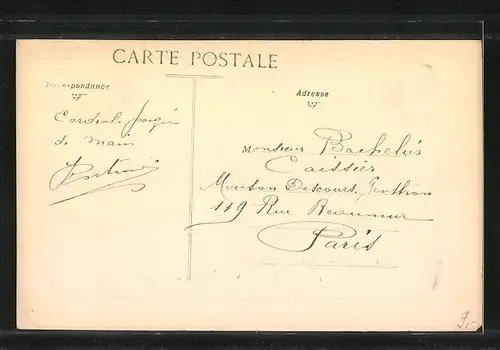 CARTE POSTALE
Correspondance
Adresse
Cordiale poignée
de main
Monsieur Bachelès
Caissier
Mouton Descours,
119 Rue Réaumur
Paris
9,-